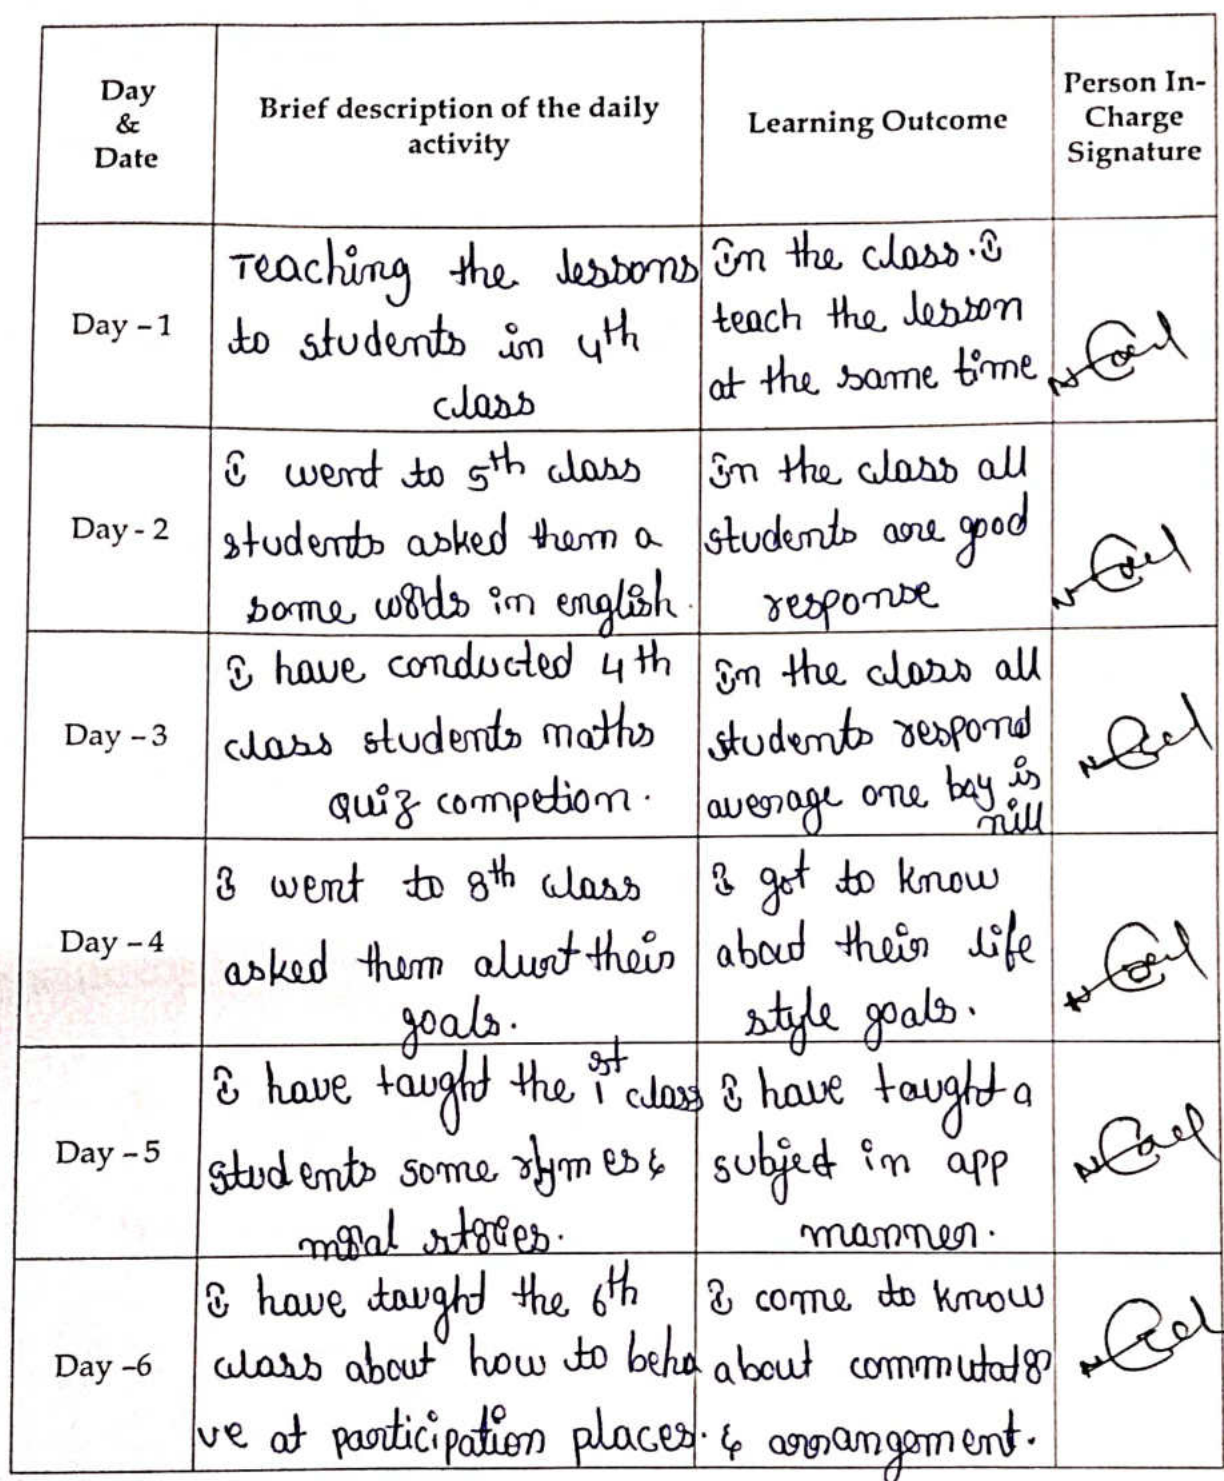 Day
&
Date
Brief description of the daily
activity
Learning Outcome
Person In-
Charge
Signature
Day – 1
Teaching the lessons
to students in 4th
class
In the class. I
teach the lesson
at the same time
Day - 2
I went to 5th class
students asked them a
some words in english.
In the class all
students are good
response
Day – 3
I have conducted 4th
class students maths
quiz competion.
In the class all
students respond
average one boy is
nill
Day – 4
I went to 8th class
asked them about their
goals.
I got to know
about their life
style goals.
Day – 5
I have taught the 1st class
students some rhymes &
moral stories.
I have taught a
subject in app
manner.
Day –6
I have taught the 6th
class about how to beha
ve at participation places.
I come to know
about commutator
& arrangement.